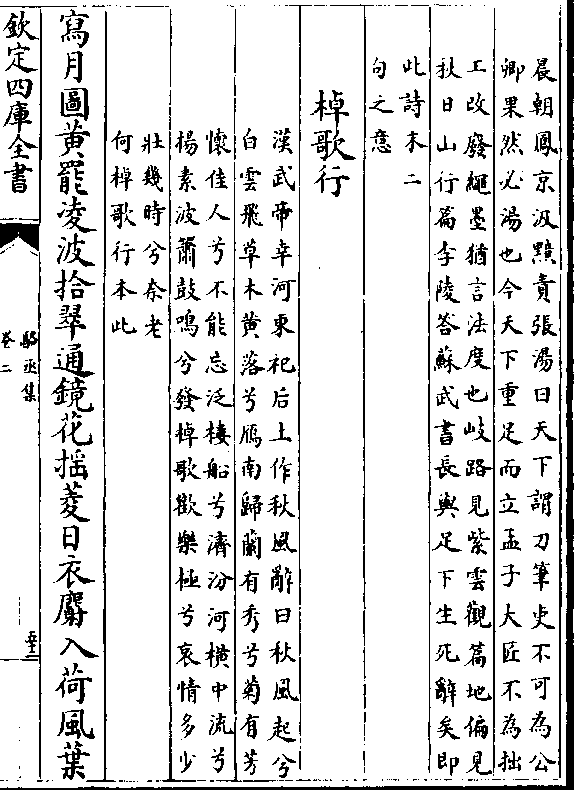 晨朝鳳京汲黯責張湯曰天下謂刀筆吏不可為公
卿果然必湯也今天下重足而立孟子大匠不為拙
工改廢繩墨猶言法度也岐路見紫雲觀篇地偏見
秋日山行篇李陵答蘇武書長與足下生死辭矣即
此詩末二
句之意
棹歌行
漢武帝幸河東祀后土作秋風辭曰秋風起兮
白雲飛草木黃落兮鴈南歸蘭有秀兮菊有芳
懷佳人兮不能忘泛樓船兮濟汾河橫中流兮
揚素波簫鼓鳴兮發棹歌歡樂極兮哀情多少
壯幾時兮奈老
何棹歌行本此
寫月圖黃罷凌波拾翠通鏡花揺菱日衣麝入荷風葉
欽定四庫全書
駱丞集
卷二
五十二